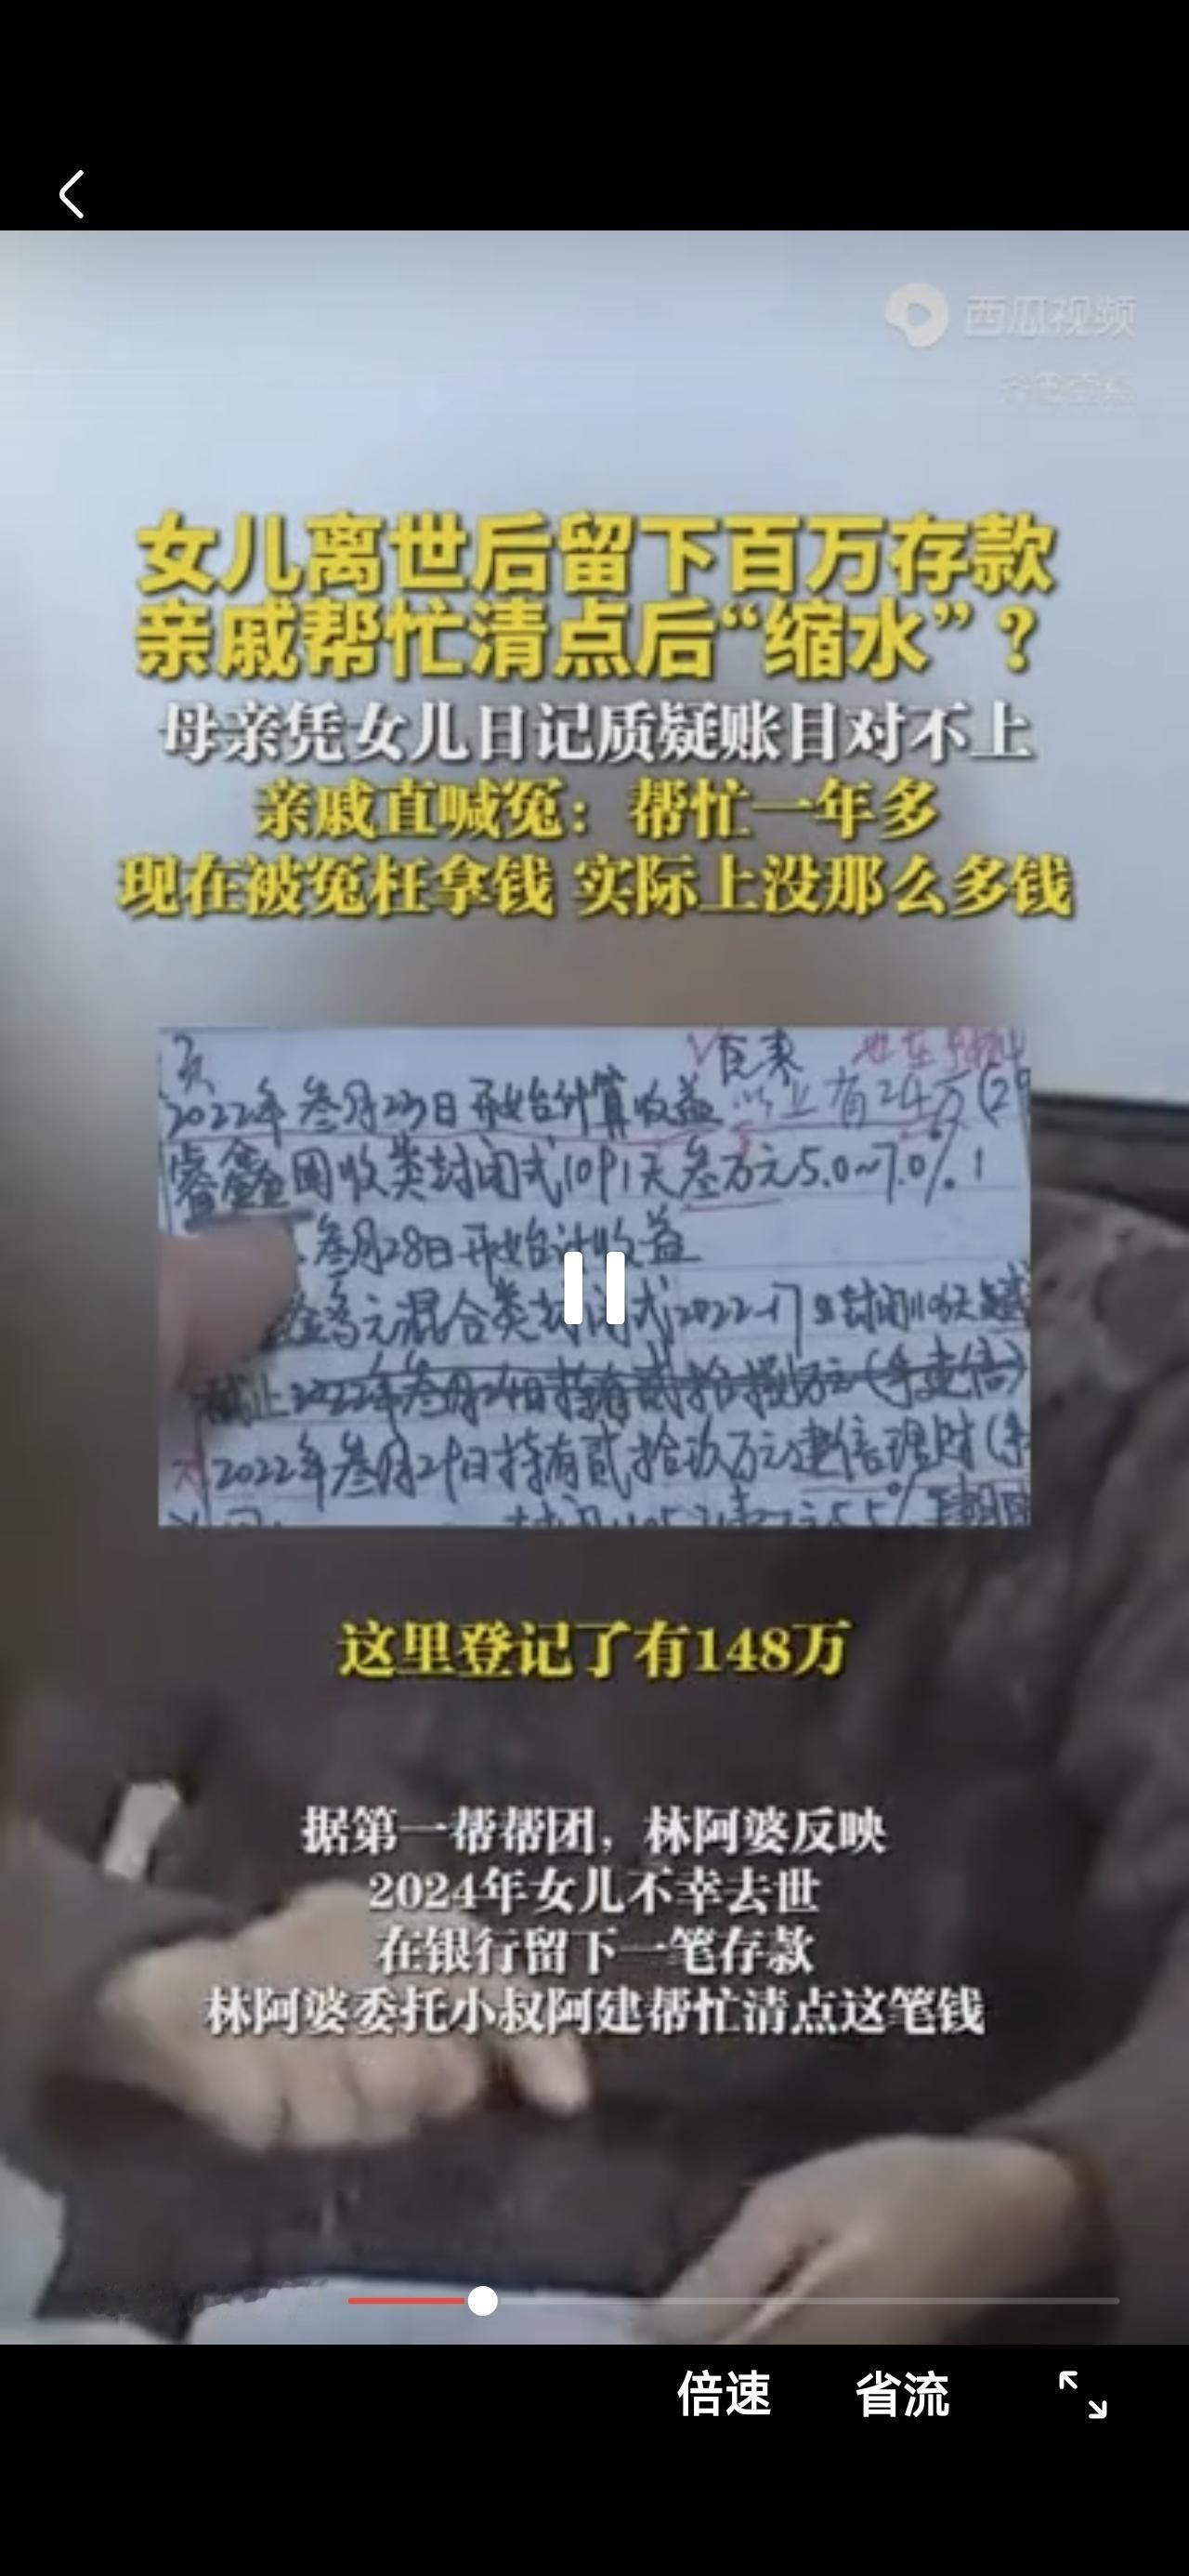 西瓜视频
女儿离世后留下百万存款
亲戚帮忙清点后“缩水”？
母亲凭女儿日记质疑账目对不上
亲戚直喊冤：帮忙一年多
现在被冤枉拿钱 实际上没那么多钱
2022年叁月23日开始计算收益 以上有24万(2
睿鑫固收类封闭式1091天叁万元5.0~7.0%
叁月28日开始计收益
万元混合类封闭式2022-17
2022年叁月29日持有贰拾玖万元建信理财
这里登记了有148万
据第一帮帮团，林阿婆反映
2024年女儿不幸去世
在银行留下一笔存款
林阿婆委托小叔阿建帮忙清点这笔钱
倍速 省流